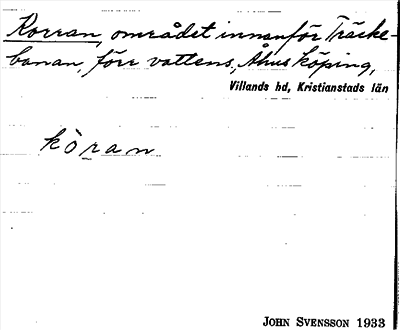 Korran, området innanför Träcke-
banan, förr vattens., Åhus köping,
Villands hd, Kristianstads län
kòṟan
JOHN SVENSSON 1933